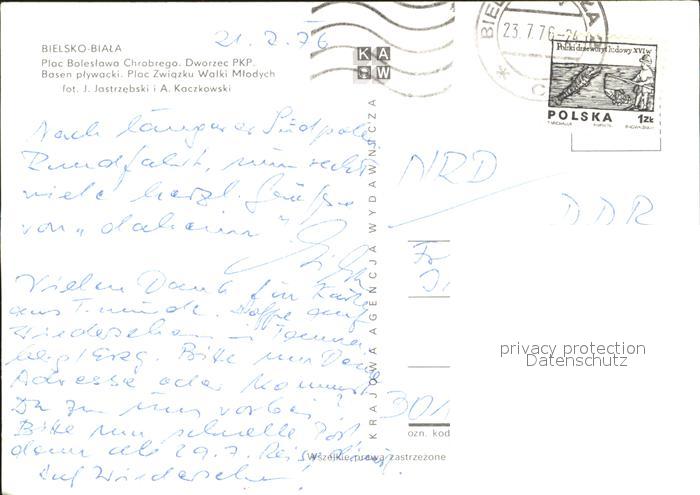 21.7.76
BIELSKO-BIAŁA
Plac Bolesława Chrobrego. Dworzec PKP.
Basen pływacki. Plac Związku Walki Młodych
fot. J. Jastrzębski i A. Kaczkowski
KAW
BIELSKO BIAŁA
23.7.76
Polski drzeworyt ludowy XVI w.
POLSKA 1 ZŁ
Nach langer Südpolen
Rundfahrt, nun recht
viele herzl. Grüße
von „daheim"
Vielen Dank für Karte
aus Hoffe auf
Wiedersehen in
berg/Erzg. Bitte nur Deine
Adresse oder kommst
Du zu uns vorbei?
Bitte um schnelle Post
denn ab 29.7.
Auf Wiedersehen
KRAJOWA AGENCJA WYDAWNICZA
NRD
DDR
Fr
301
ozn. kod
Wszelkie prawa zastrzeżone
privacy protection
Datenschutz